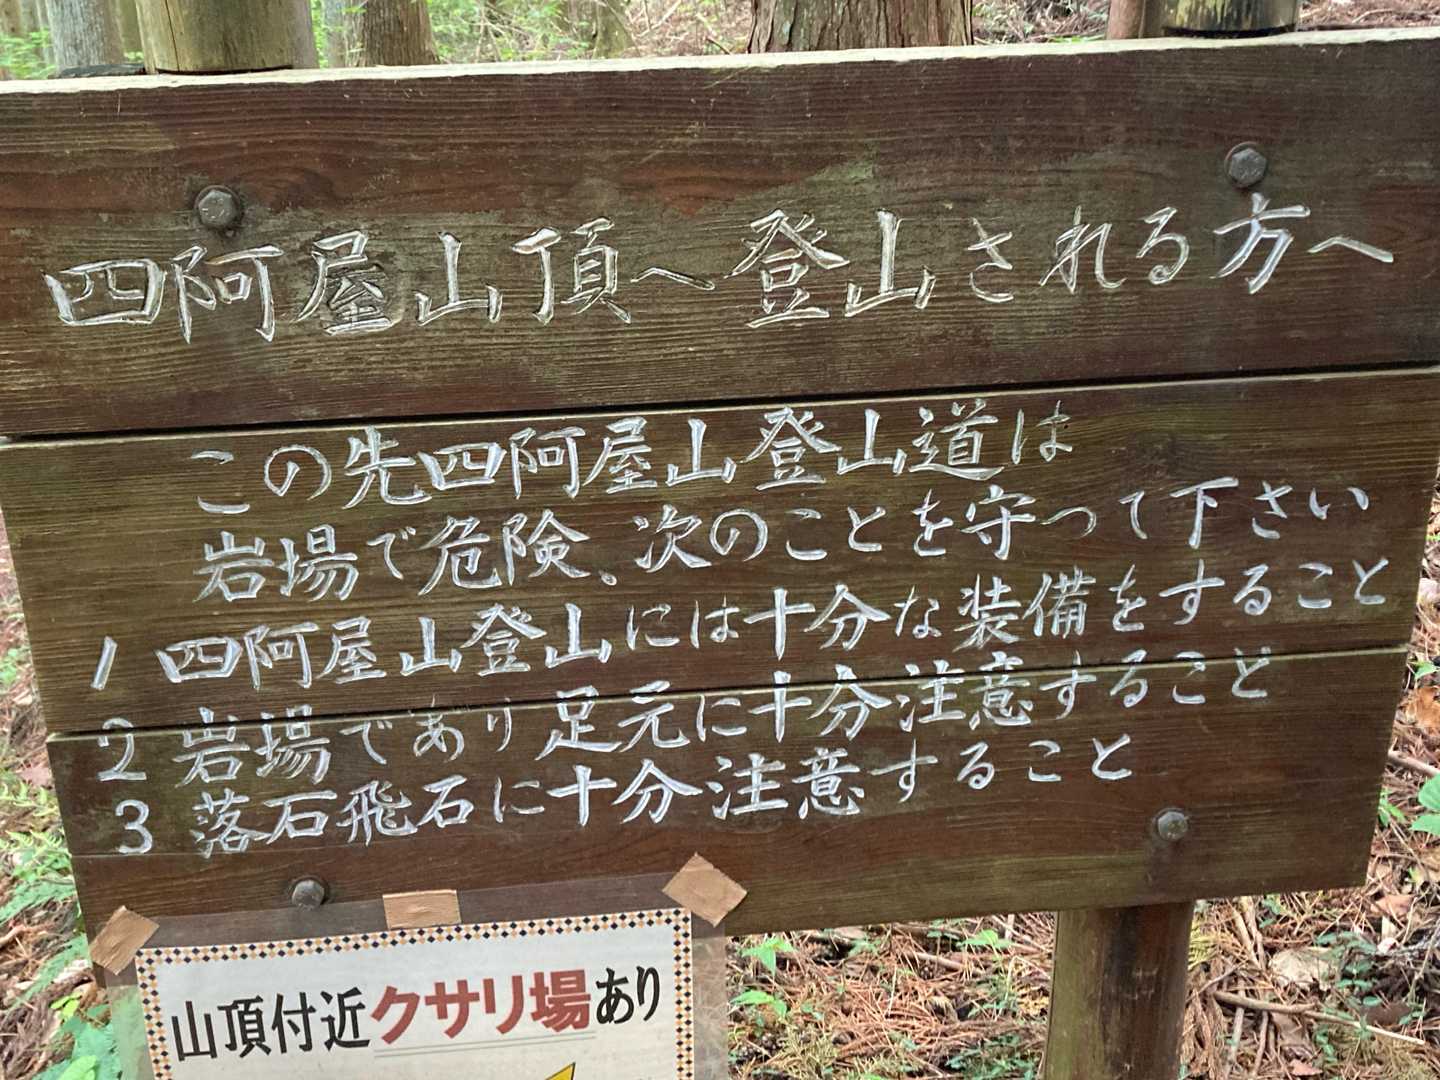 四阿屋山頂へ登山される方へ
この先四阿屋山登山道は
岩場で危険、次のことを守って下さい
1 四阿屋山登山には十分な装備をすること
2 岩場であり足元に十分注意すること
3 落石飛石に十分注意すること
山頂付近クサリ場あり